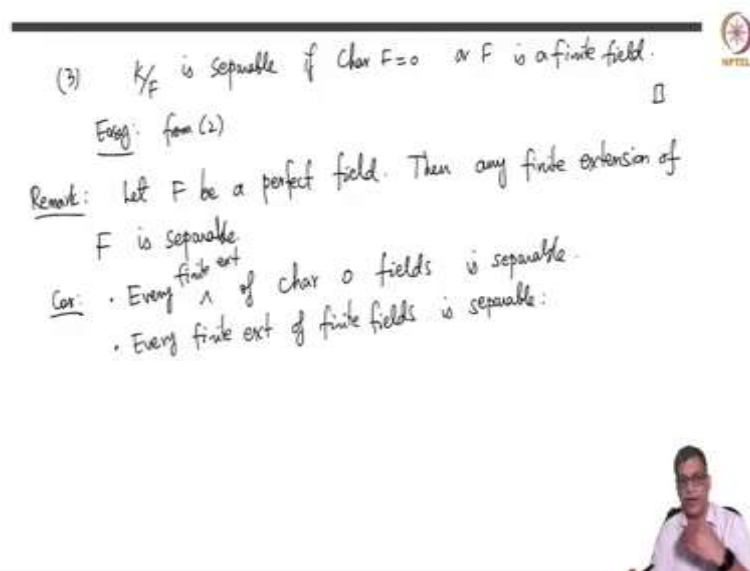 (3) K/F is separable if Char F=0 or F is a finite field.
Easy: from (2)
Remark: Let F be a perfect field. Then any finite extension of
F is separable
Cor: · Every finite ext of char 0 fields is separable.
· Every finite ext of finite fields is separable:
NPTEL